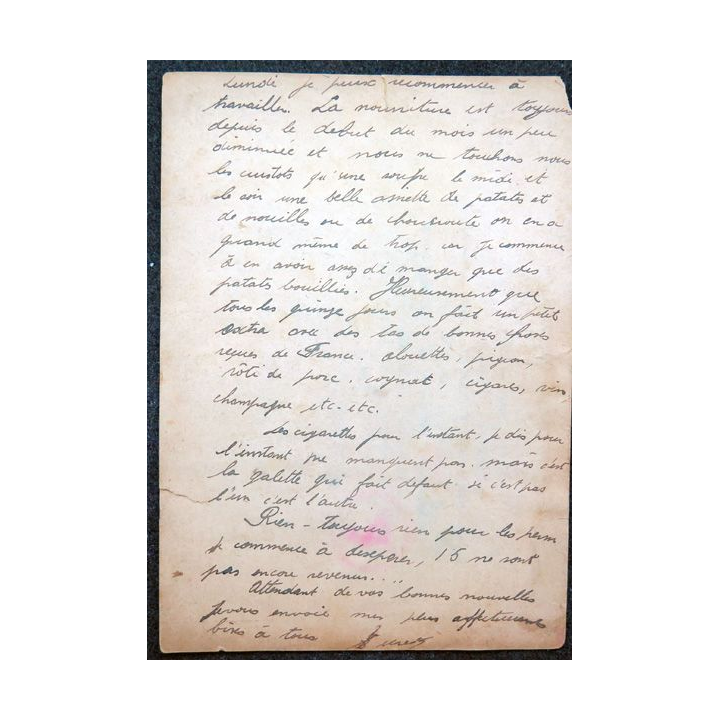 Lundi je peux recommencer à
travailler. La nourriture est toujours
depuis le debut du mois un peu
diminuée et nous ne touchons nous
les cuistots qu'une soupe le midi et
le soir une belle assiette de patates et
de nouilles ou de choucroute on en a
quand même de trop. car je commence
à en avoir assez de manger que des
patats bouillies. Heureusement que
tous les quinze jours on fait un petit
extra avec des tas de bonnes choses
reçues de France. alouettes, pigeon,
rôti de porc. cognac, cigares, vin,
champagne etc-etc.
Les cigarettes pour l'instant, je dis pour
l'instant ne manquent pas. mais c'est
la galette qui fait defaut. si c'est pas
l'un c'est l'autre.
Rien - toujours rien pour les perm
je commence à desesperer, 15 ne sont
pas encore revenus....
Attendant de vos bonnes nouvelles
je vous envoie mes plus affectueuses
bises à tous